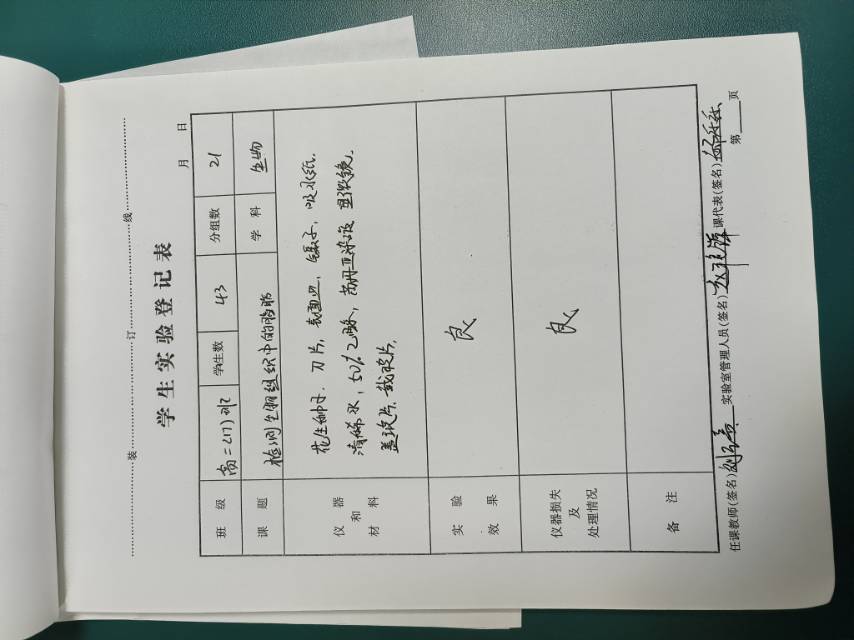 装 订 线
学生实验登记表
月 日
班 级 高二(17)班 学生数 43 分组数 21
课 题 检测生物组织中的脂肪 学 科 生物
仪 器 和 材 料
花生种子. 刀片, 表面皿, 镊子, 吸水纸.
清稀水, 50%乙醇, 苏丹Ⅲ染液 显微镜.
盖玻片. 载玻片.
实 验 效 果 良
仪器损失 及 处理情况 良
备 注
任课教师(签名) 实验室管理人员(签名) 课代表(签名)
第 页